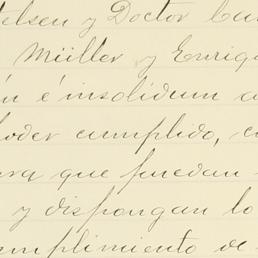 telsen y Doctor Car
Müller y Enriqu
n é insolidum a
poder cumplido, c
ara que puedan
y dispongan lo
cumplimiento de